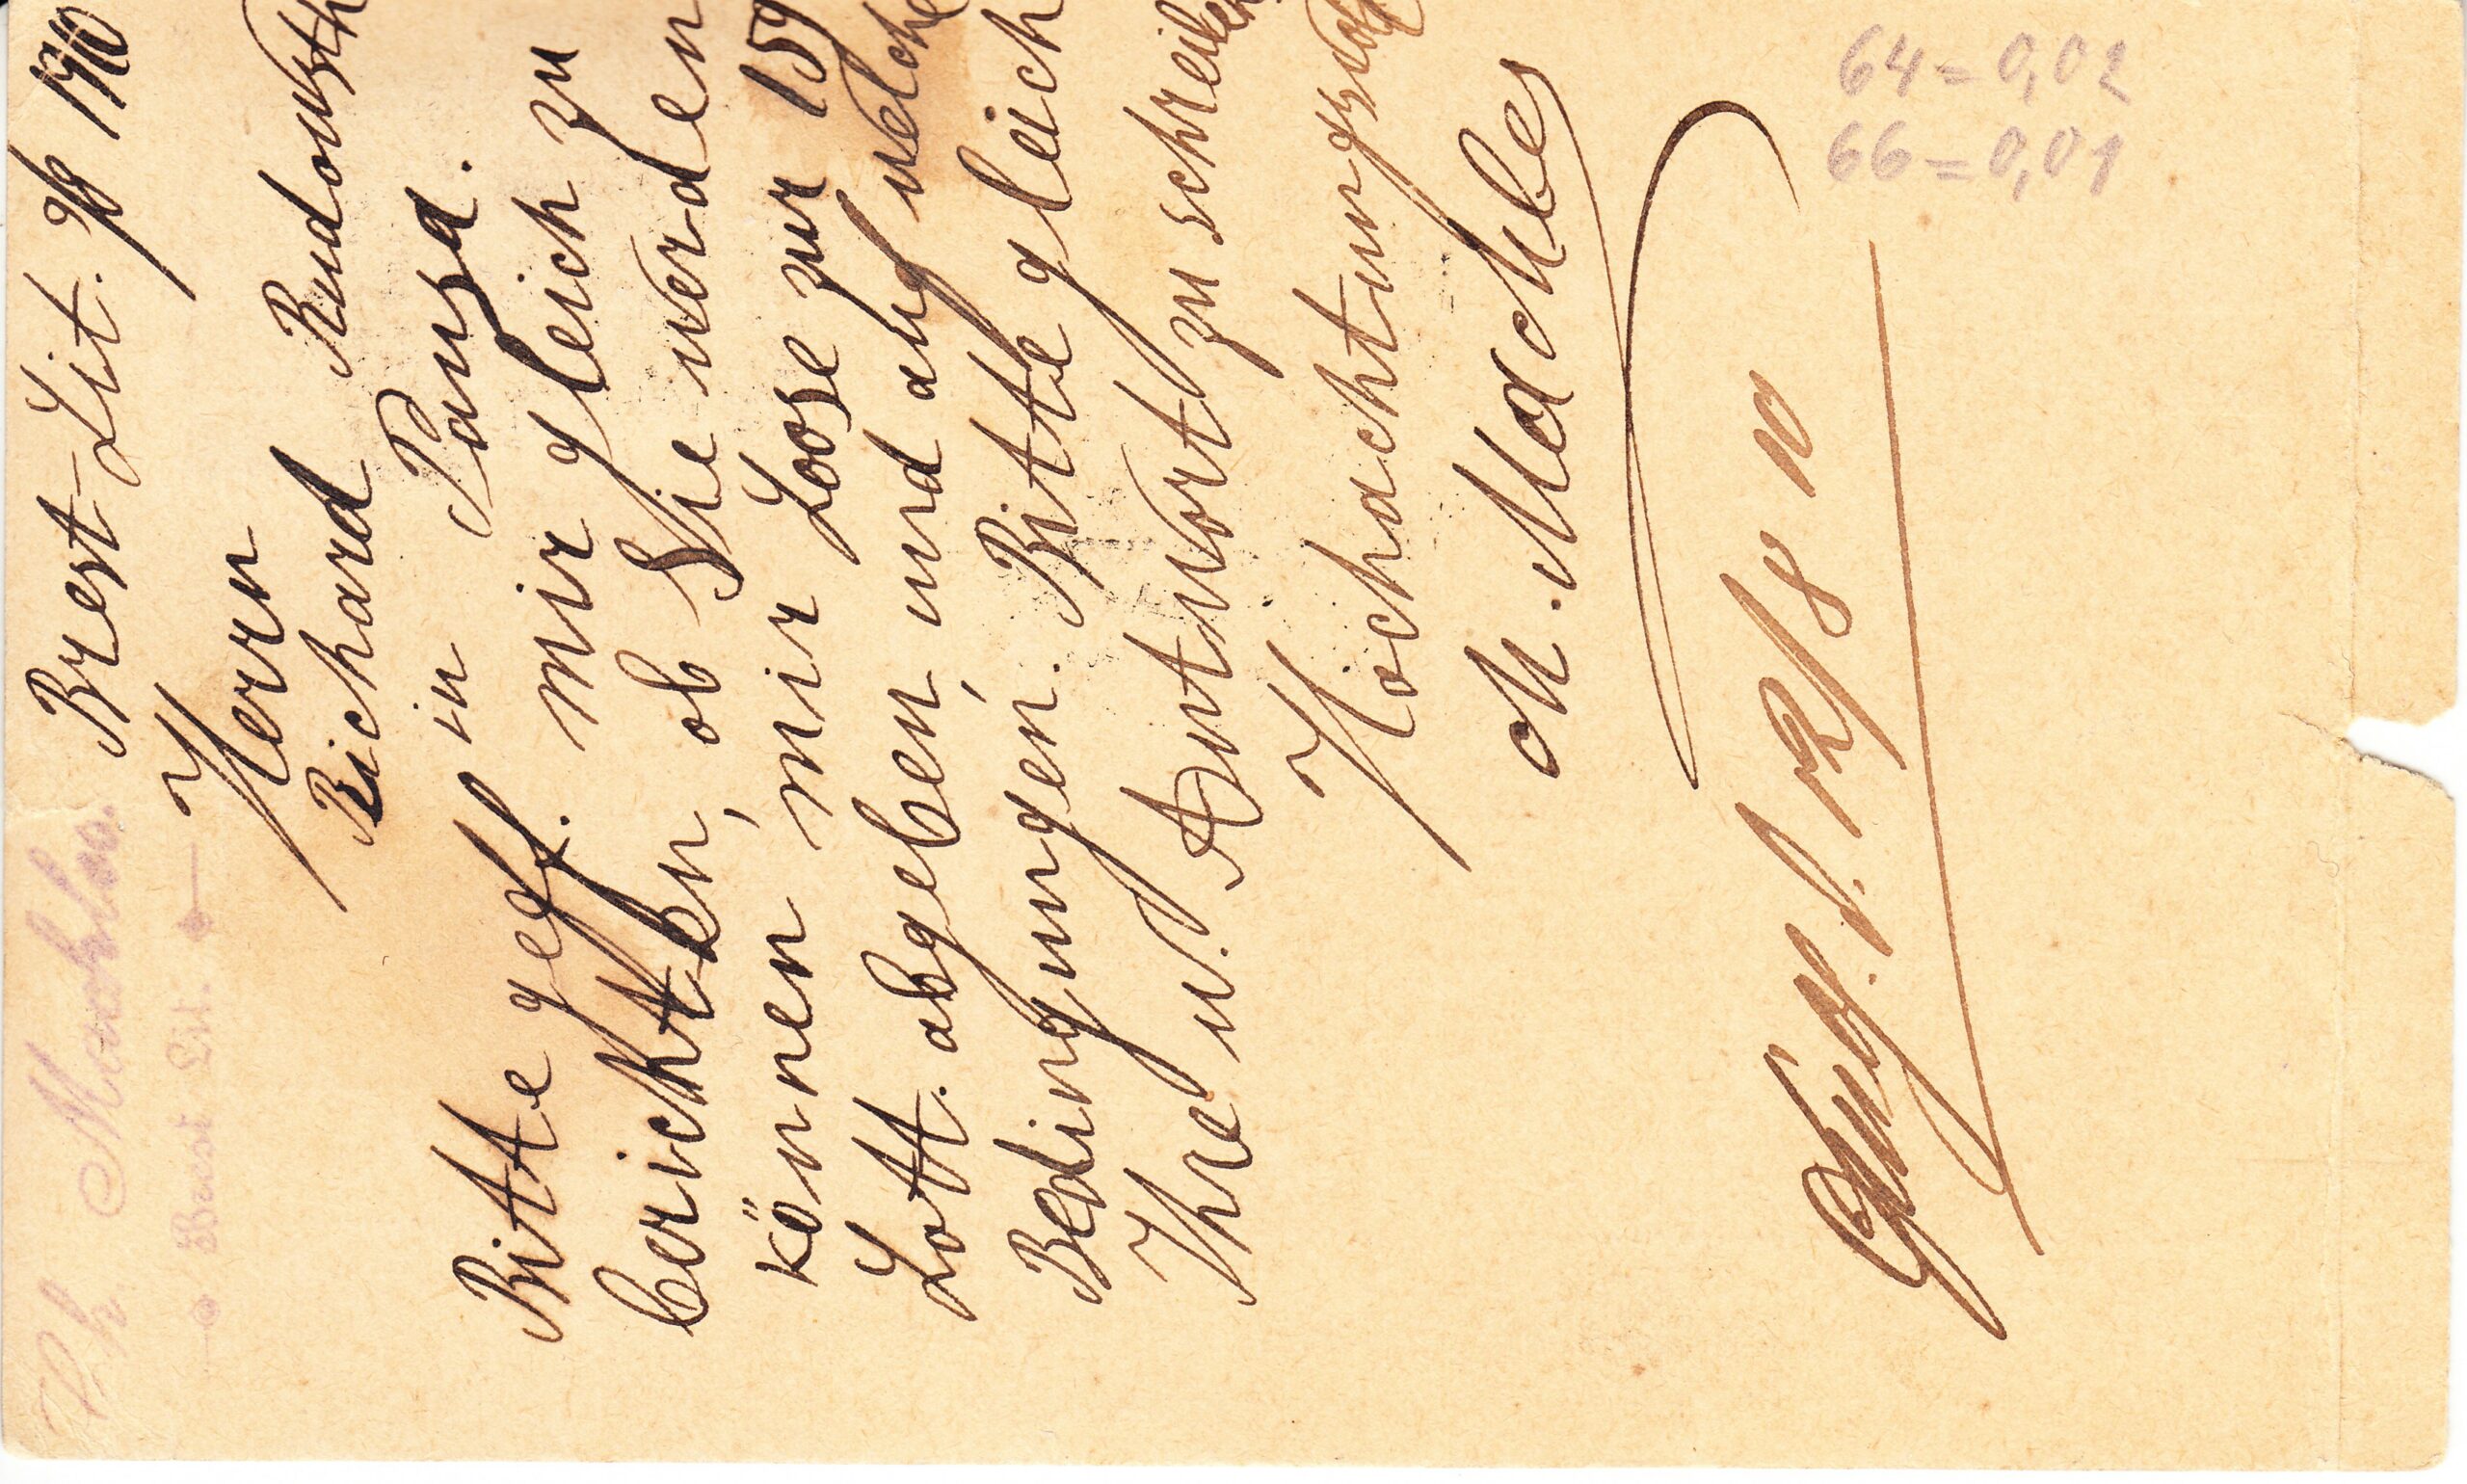 M. Machles.
Brest Lit.
Brest-Lit. 190
Herrn
Richard
in Pausa.
Bitte gefl. mir gleich zu
berichten, ob Sie werden
können mir Loose zur 159
Lott. abgeben, und auf welche
Bedingungen. Bitte gleich
Ihre w. Antwort zu schreiben
Hochachtungsvoll
M. Machles
12/8 10
64 = 0,02
66 = 0,01